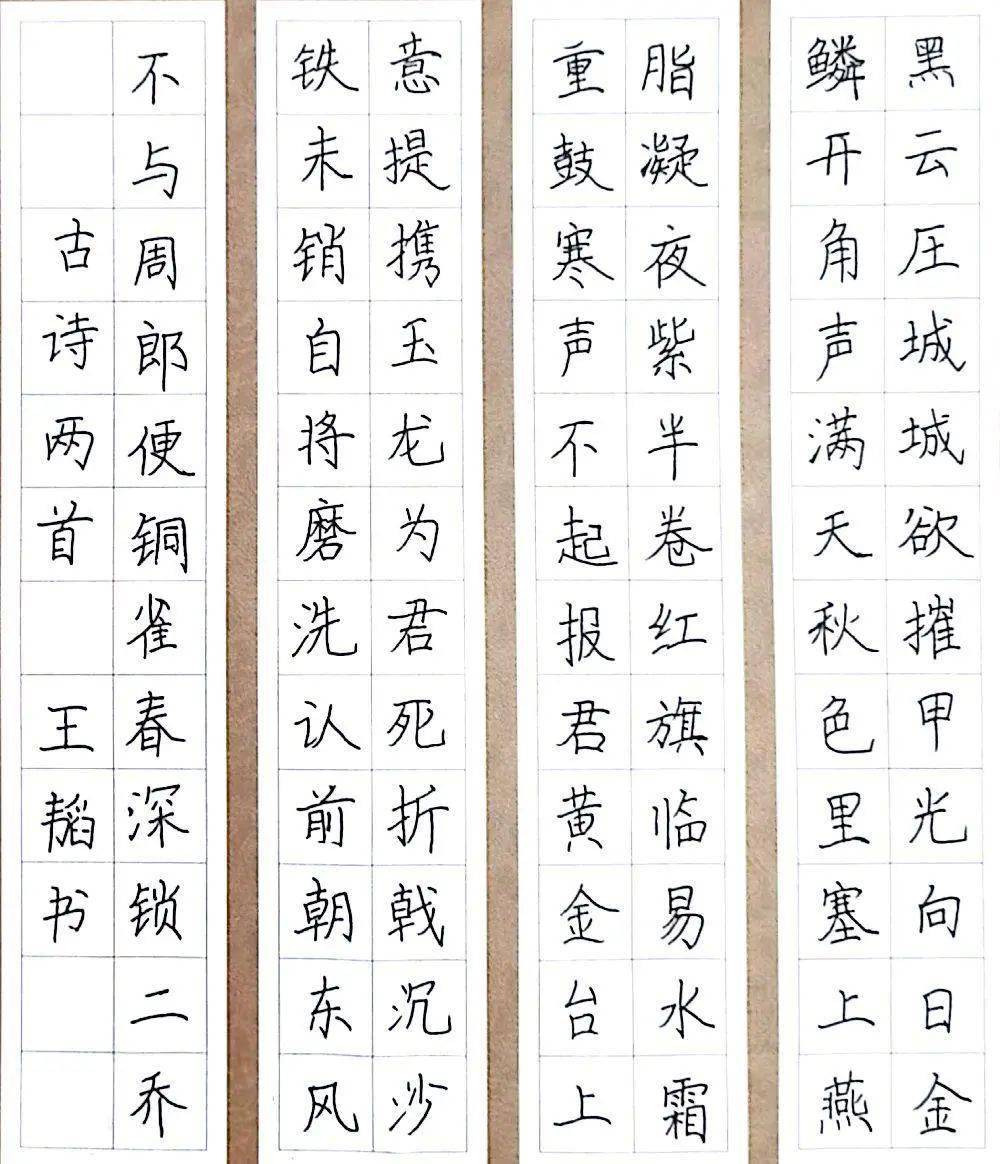 黑云压城城欲摧甲光向日金
鳞开角声满天秋色里塞上燕
脂凝夜紫半卷红旗临易水霜
重鼓寒声不起报君黄金台上
意提携玉龙为君死折戟沉沙
铁未销自将磨洗认前朝东风
不与周郎便铜雀春深锁二乔
古诗两首 王韬书